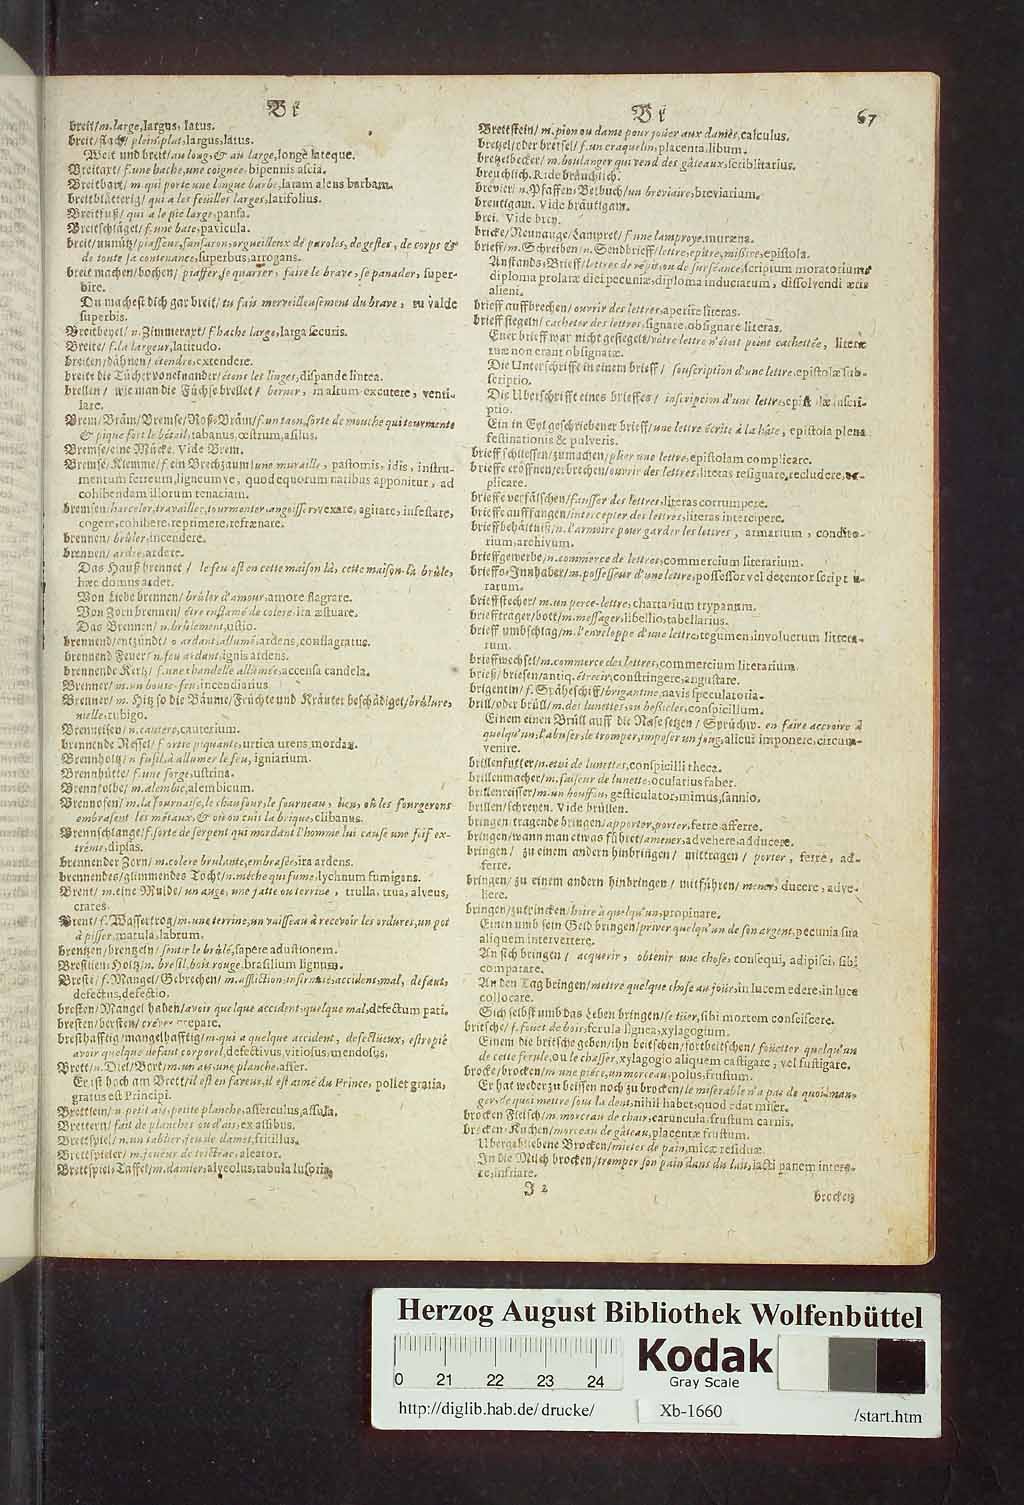 Br
breit/ m. large, largus, latus.
breit/ flach/ plein, plat, largus, latus.
Weit und breit/ au long, & au large, longè lateque.
Breitaxt/ f. une hache, une coignée, bipennis ascia.
Breitbart/ m. qui porte une longue barbe, latam alens barbam.
breitblätterig/ qui a les feuilles larges, latifolius.
Breitfuß/ qui a le pié large, pansa.
Breitschläget/ f. une bate, pavicula.
breit/ unnütz/ piaffeur, fanfaron, orgueilleux de paroles, de gestes, de corps &
de toute sa contenance, superbus, arrogans.
breit machen/ bochen/ piaffer, se quarrer, faire le brave, se panader, super-
bire.
Du machest dich gar breit/ tu fais merveilleusement du brave, tu valde
superbis.
Breitbeyel/ n. Zimmeraxt/ f. hache large, larga securis.
Breite/ f. la largeur, latitudo.
breiten/ dähnen/ étendre, extendere.
breite die Tücher voneinander/ étens les linges, dispande lintea.
brellen/ wie man die Füchse brellet/ berner, in altum excutere, venti-
lare.
Brem/ Bräm/ Bremse/ Roß-Bräm/ f. un taon, sorte de mouche qui tourmente
& pique fort le bétail, tabanus, œstrum, asilus.
Bremse/ eine Mücke. Vide Brem.
Bremse/ Klemme/ f. ein Brechzaum/ une muraille, pastomis, idis, instru-
mentum ferreum, ligneumve, quod equorum naribus apponitur, ad
cohibendam illorum tenaciam.
bremsen/ harceler, travailler, tourmenter, angoisser, vexare, agitare, infestare,
cogere, cohibere, reprimere, refrænare.
brennen/ brûler, incendere.
brennen/ ardre, ardere.
Das Hauß brennet/ le feu est en cette maison là, cette maison-là brûle,
hæc domus ardet.
Von Liebe brennen/ brûler d'amour, amore flagrare.
Von Zorn brennen/ être enflamé de colere, ira æstuare.
Das Brennen/ n. brûlement, ustio.
brennend/ entzündt/ o ardant, allumé, ardens, conflagratus.
brennend Feuer/ n. feu ardant, ignis ardens.
brennende Kertz/ f. une chandelle allumée, accensa candela.
Brenner/ m. un boute-feu, incendiarius.
Brenner/ m. Hitz so die Bäume/ Früchte und Kräuter beschädiget/ brûlure,
nielle, rubigo.
Brenneisen/ n. cautere, cauterium.
brennende Nessel/ f. ortie piquante, urtica urens, mordax.
Brennholtz/ n. fusil, à allumer le feu, igniarium.
Brennhütte/ f. une forge, ustrina.
Brennkolbe/ m. alembic, alembicum.
Brennofen/ m. la fournaise, le chaufour, le fourneau, lieu, où les fourgerons
embrasent les métaux, & où on cuit la brique, clibanus.
Brennschlange/ f. sorte de serpent qui mordant l'homme lui cause une soif ex-
trême, dipsas.
brennender Zorn/ m. colere brulante, embrasée, ira ardens.
brennendes/ glimmendes Tocht/ n. méche qui fume, lychnum fumigans.
Brent/ m. eine Mulde/ un auge, une jatte ou terrine, trulla, trua, alveus,
crates.
Brent/ f. Wassertrog/ m. une terrine, un vaisseau à recevoir les ordures, un pot
à pisser, matula, labrum.
brentzen/ brentzeln/ sentir le brûlé, sapere adustionem.
Bresilien-Holtz/ n. bresil, bois rouge, brasilium lignum.
Breste/ f. Mangel/ Gebrechen/ m. affliction, infirmité, accident, mal, defaut,
defectus, defectio.
bresten/ Mangel haben/ avoir quelque accident, quelque mal, defectum pati.
bresten/ bersten/ crever, crepare.
bresthafftig/ mangelhafftig/ m. qui a quelque accident, defectueux, estropié
avoir quelque defaut corporel, defectivus, vitiosus, mendosus.
Brett/ n. Diel/ Bort/ m. un ais, une planche, asser.
Er ist hoch am Brett/ il est en faveur, il est aimé du Prince, pollet gratia,
gratus est Principi.
Brettlein/ n. petit ais, petite planche, asserculus, assula.
Brettern/ fait de planches ou d'ais, ex assibus.
Brettspiel/ n. un tablier, jeu de dames, fritillus.
Brettspieler/ m. joueur de trictrac, aleator.
Brettspiel-Taffel/ m. damier, alveolus, tabula lusoria.
Br
67
Brettstein/ m. pion ou dame pour joüer aux dames, calculus.
bretzel/ oder bretsel/ f. un craquelin, placenta, libum.
bretzelbecker/ m. boulanger qui vend des gâteaux, scriblitarius.
breuchlich. Vide bräuchlich.
brevier/ n. Pfaffen-Betbuch/ un breviaire, breviarium.
breuttgam. Vide bräutigam.
brei. Vide brey.
bricke/ Neunauge/ Lampret/ f. une lamproye, muræna.
brieff/ m. Schreiben/ n. Sendbrieff/ lettre, epitre, missive, epistola.
Anstands-Brieff/ lettres de répit, ou de surséance, scriptum moratorium,
diploma prolatæ diei pecuniæ, diploma induciarum, dissolvendi æris
alieni.
brieff auffbrechen/ ouvrir des lettres, aperire literas.
brieff siegeln/ cacheter des lettres, signare, obsignare literas.
Euer brieff war nicht gesiegelt/ vôtre lettre n'étoit point cachettée, literæ
tuæ non erant obsignatæ.
Die Unterschrifft in einem brieff/ souscription d'une lettre, epistolæ sub-
scriptio.
Die Uberschrifft eines brieffes/ inscription d'une lettre, epistolæ inscri-
ptio.
Ein in Eyl geschriebener brieff/ une lettre écrite à la hâte, epistola plena
festinationis & pulveris.
brieff schliessen/ zumachen/ plier une lettre, epistolam complicare.
brieffe eröffnen/ erbrechen/ ouvrir des lettres, literas resignare, recludere, ex-
plicare.
brieffe verfälschen/ fausser des lettres, literas corrumpere.
brieffe auffangen/ intercepter des lettres, literas intercipere.
brieffbehältniß/ n. l'armoire pour garder les lettres, armarium, condito-
rium, archivum.
brieffgewerbe/ n. commerce de lettres, commercium literarium.
brieffs-Innhaber/ m. possesseur d'une lettre, possessor vel detentor script. lit-
rarum.
brieffstecher/ m. un perce-lettre, chartarium trypanum.
briefftrager/ bott/ m. messager, libellio, tabellarius.
brieff umbschlag/ m. l'enveloppe d'une lettre, tegumen, involucrum littera-
rum.
brieffwechsel/ m. commerce des lettres, commercium literarium.
brieß/ briesen/ antiq. étrecir, constringere, angustare.
brigentin/ f. Sräheschiff/ brigantine, navis speculatoria.
brill/ oder brüll/ m. des lunettes, ou besicles, conspicillum.
Einem einen Brüll auff die Nase setzen/ Sprüchw. en faire accroire à
quelqu'un, l'abuser, le tromper, imposer un joug, alicui imponere, circum-
venire.
brillenfutter/ n. etui de lunettes, conspicilli theca.
brillenmacher/ m. faiseur de lunette, ocularius faber.
brillenreisser/ m. un bouffon, gesticulator, mimus, sannio.
brillen/ schreyen. Vide brüllen.
bringen tragende bringen/ apporter, porter, ferre, afferre.
bringen/ wann man etwas führet/ amener, advehere, adducere.
bringen/ zu einem andern hinbringen/ mittragen/ porter, ferre, ad-
ferre.
bringen/ zu einem andern hinbringen/ mitführen/ mener, ducere, adve-
here.
bringen/ zutrincken/ boire à quelqu'un, propinare.
Einen umb sein Geld bringen/ priver quelqu'un de son argent, pecunia sua
aliquem intervertere.
An sich bringen/ acquerir, obtenir une chose, consequi, adipisci, sibi
comparare.
An den Tag bringen/ mettre quelque chose au jour, in lucem edere, in luce
collocare.
Sich selbst umb das Leben bringen/ se tüer, sibi mortem consciscere.
britsche/ f. fouet de bois, ferula lignea, xylagogium.
Einem die britsche geben/ ihn beitschen/ fortbeitschen/ foüetter quelqu'un
de cette ferule, ou le chasser, xylagogio aliquem castigare, vel fustigare.
brocke/ brocken/ m. une piéce, un morceau, polus, frustum.
Er hat weder zu beissen noch zu brocken/ le miserable n'a pas de quoi man-
ger, de quoi mettre sous la dent, nihil habet, quod edat miser.
brocken Fleisch/ m. morceau de chair, caruncula, frustum carnis.
brocken-Kuchen/ morceau de gâteau, placentæ frustum.
Ubergebliebene Brocken/ mietes de pain, micæ residuæ.
In die Milch brocken/ tremper son pain dans du lait, lacti panem inter-
re, infriare.
J 2
brocken
Herzog August Bibliothek Wolfenbüttel
0 21 22 23 24
Kodak
Gray Scale
http://diglib.hab.de/ drucke/ Xb-1660 /start.htm